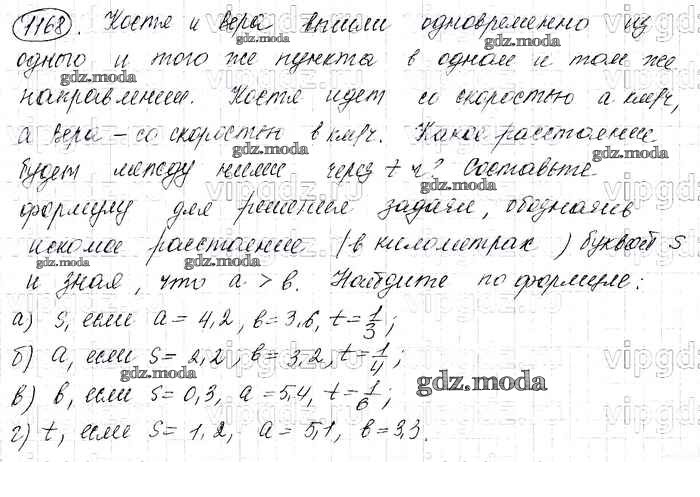 1168. Костя и Вера вышли одновременно из
одного и того же пункта в одном и том же
направлении. Костя идет со скоростью a км/ч,
а Вера – со скоростью в км/ч. Какое расстояние
будет между ними через t ч? Составьте
формулу для решения задачи, обозначив
искомое расстояние (в километрах) буквой S
и зная, что a > в. Найдите по формуле:
а) S, если a = 4,2, в = 3,6, t = 1/3;
б) a, если S = 2,2, в = 3,2, t = 1/4;
в) в, если S = 0,3, a = 5,4, t = 1/6;
г) t, если S = 1,2, a = 5,1, в = 3,3.
gdz.moda
gdz.moda
gdz.moda
gdz.moda
gdz.moda
gdz.moda
gdz.moda
gdz.moda
gdz.moda
gdz.moda
gdz.moda